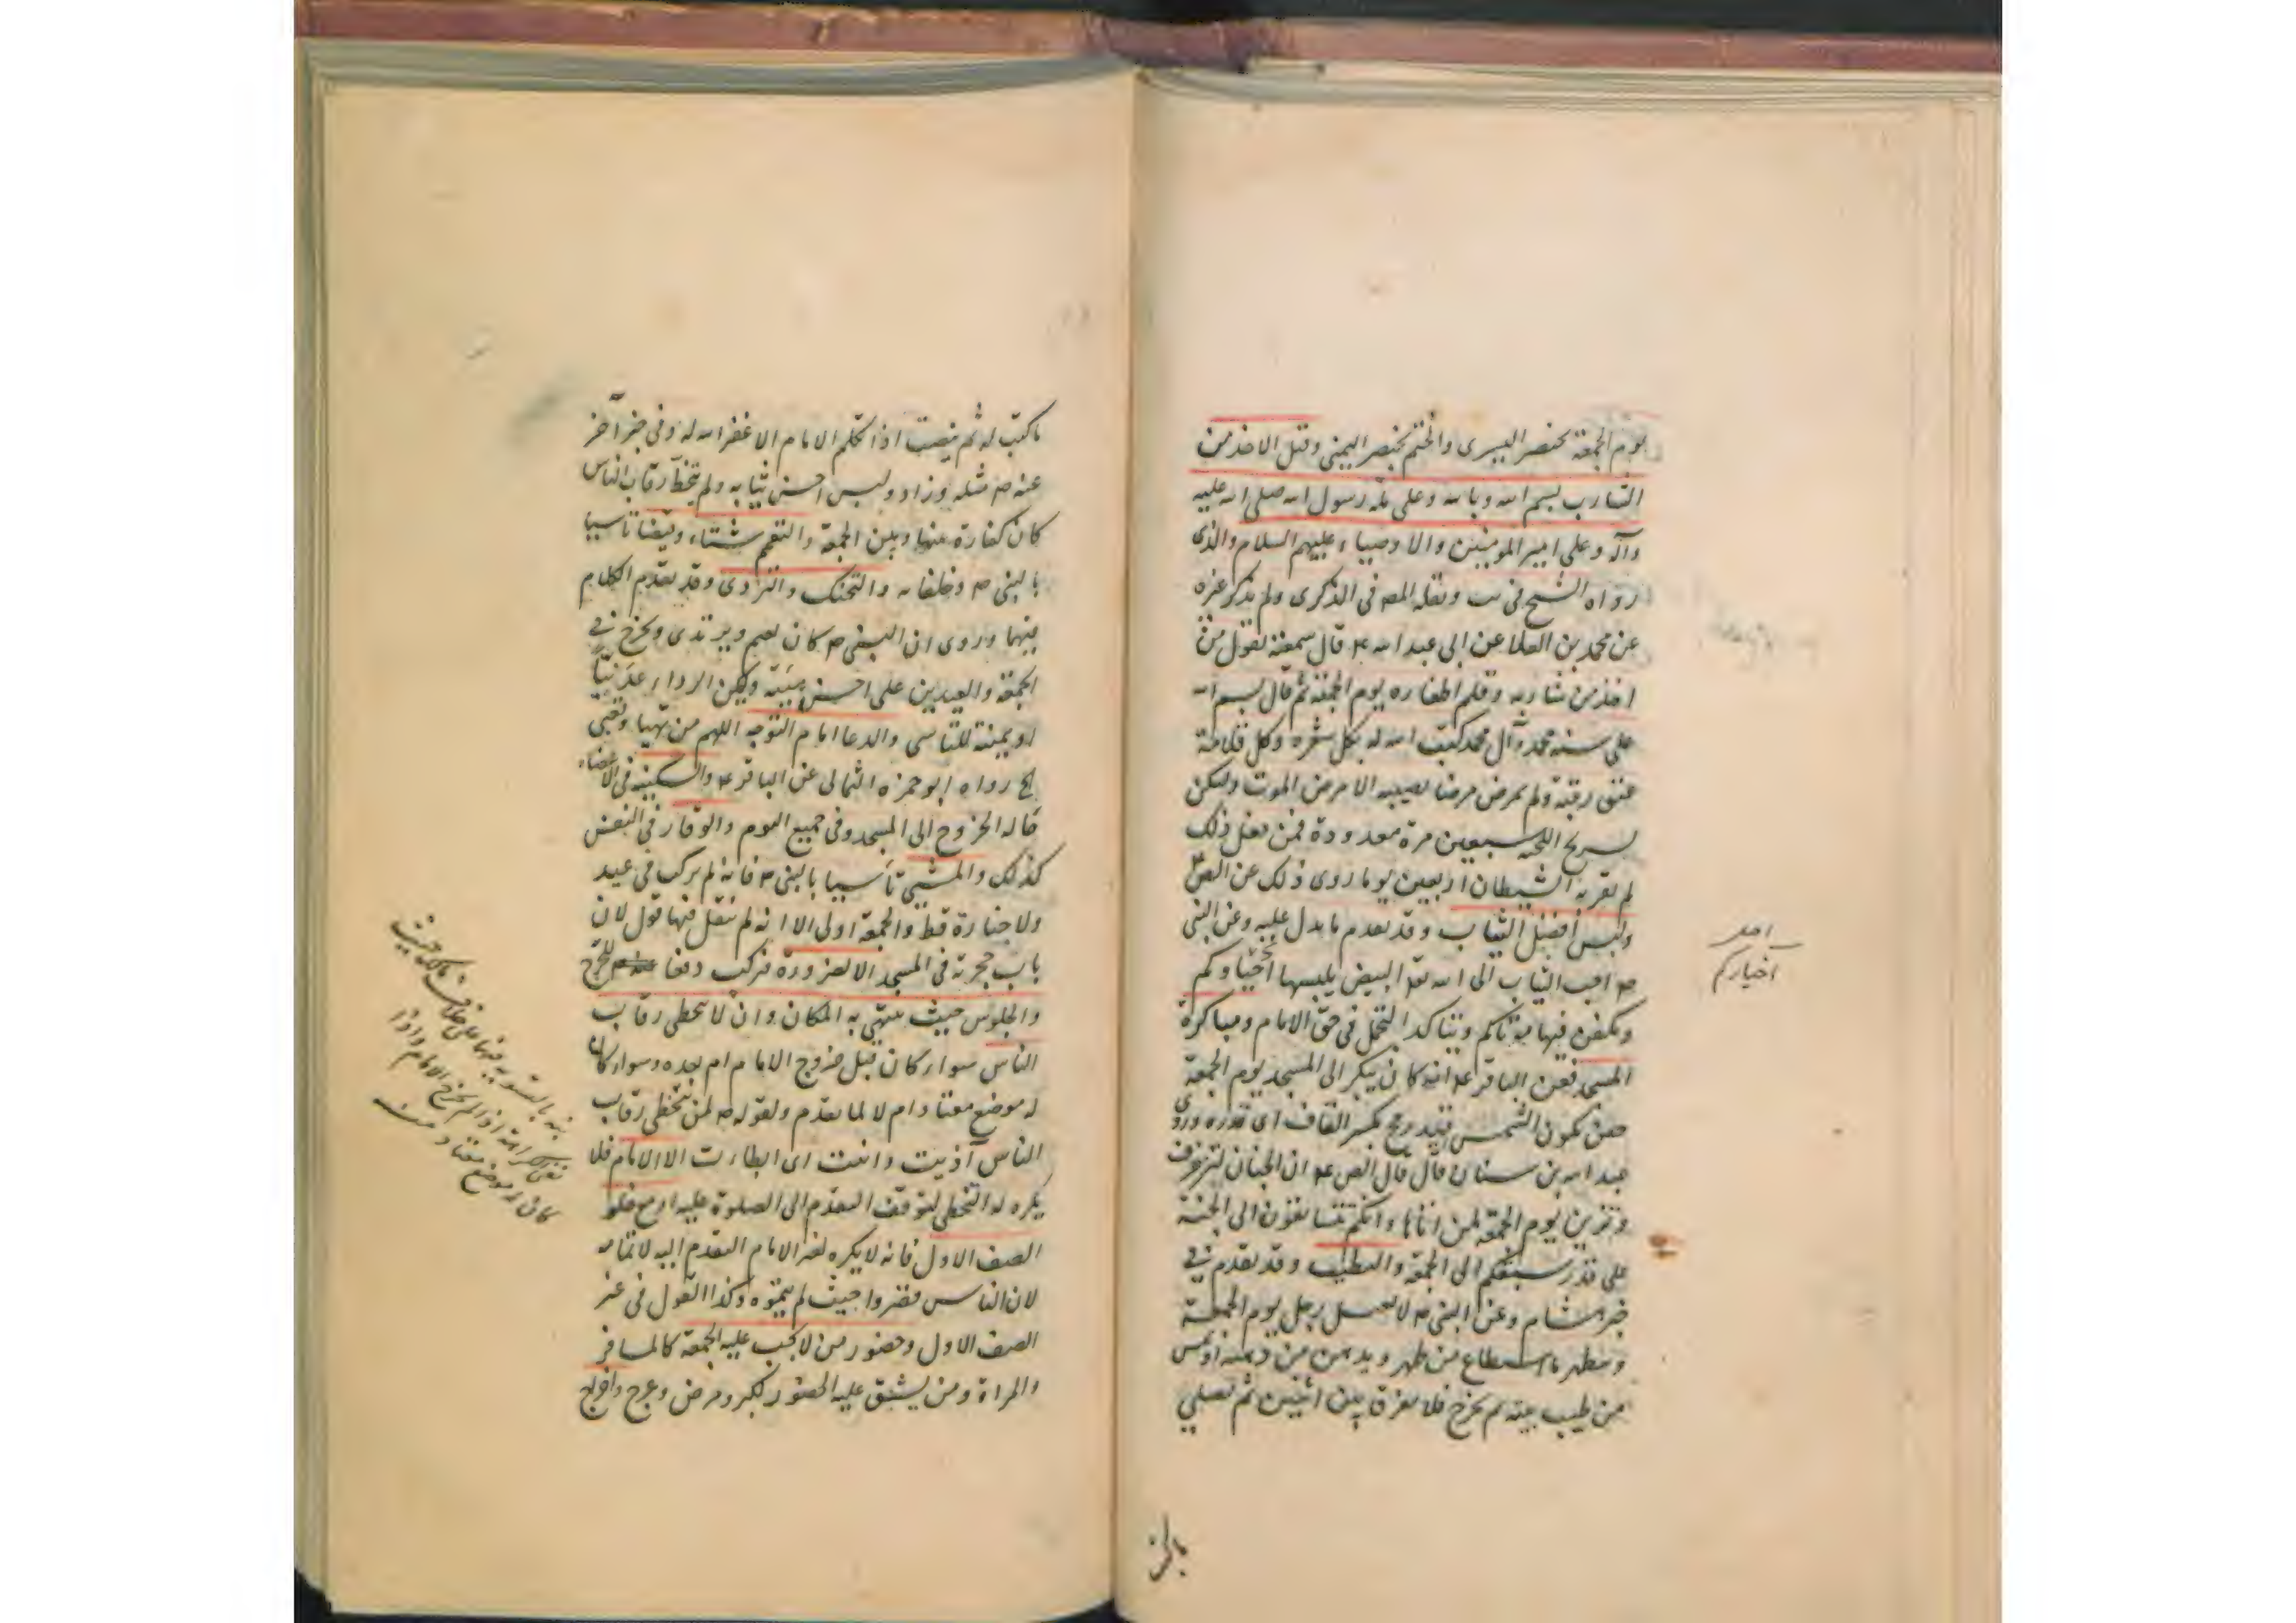 يوم الجمعة بخنصر اليسرى والختم بخنصر اليمنى وقبل الاخذ من
الشارب بسم الله وبالله وعلى ملة رسول الله صلى الله عليه
وآله وعلى امير المومنين والاوصياء عليهم السلام والذى
رواه الشيخ فى يب ونقله المص فى الذكرى ولم يذكر غيره
عن محمد بن العلا عن ابى عبد الله ع قال سمعته يقول من
اخذ من شاربه وقلم اظفاره يوم الجمعة ثم قال بسم الله
على سنة محمد وآل محمد كتب الله له بكل شعره وكل قلامة
عتق رقبة ولم يمرض مرضا يصيبه الا مرض الموت وليكن
تسريح اللحيه سبعين مرة معدودة فمن فعل ذلك
لم يقربه الشيطان اربعين يوما روى ذلك عن الص ع
ولبس أفضل الثياب وقد تقدم ما يدل عليه وعن النبى
ص احب الثياب الى الله تعا البيض يلبسها احياوكم
ويكفن فيها موتاكم ويتاكد التجمل فى حق الامام ومباكرة
المسجد فعن الباقر ع انه كان يبكر الى المسجد يوم الجمعة
حين تكون الشمس قيد رمح بكسر القاف اى قدره وروى
عبد الله بن سنان قال قال الص ع ان الجنان لتزخرف
وتزين يوم الجمعة لمن اتاها وانكم تتسابقون الى الجنة
على قدر سبقكم الى الجمعة والتطيب وقد تقدم فى
خبر هشام وعن النبى ص لا يغتسل رجل يوم الجمعة
ويتطهر ما استطاع من طهر ويدهن من دهنه او يمس
من طيب بيته ثم يخرج فلا يفرق بين اثنين ثم يصلي
احد
اخياركم
ما كتب له ثم ينصت اذا تكلم الامام الا غفر الله له وفى خبر آخر
عنه ص مثله وزاد ولبس احسن ثيابه ولم يتخط رقاب الناس
كان كفارة بينها وبين الجمعة والتعمم شتاء وقيضا تاسيا
بالنبى ص وخلفائه والتحنك والتردى وقد تقدم الكلام
فيهما وروى ان النبى ص كان يعم ويرتدى ويخرج فى
الجمعة والعيدين على احسن هيئته وليكن الرداء عدنيا
او يمنية للتاسى والدعا امام التوجه اللهم من تهيا وتعبى
الخ رواه ابو حمزه الثمالى عن الباقر ع والسكينه فى الاعضاء
حالة الخروج الى المسجد وفى جميع اليوم والوقار فى النفس
كذلك والمشى تأسيا بالنبى ص فانه لم يركب فى عيد
ولا جنازة قط والجمعة اولى الا انه لم ينقل فيها قول لان
باب حجرته فى المسجد الا لضرورة فيركب دفعا للحرج
والجلوس حيث ينتهى به المكان وان لا يتخطى رقاب
الناس سواء كان قبل خروج الامام ام بعده وسواء كان
له موضع معتاد ام لا لما تقدم ولقوله ص لمن يتخطى رقاب
الناس آذيت وانيت اى ابطات الا الامام فلا
يكره له التخطى لتوقف التقدم الى الصلوة عليه او مع خلو
الصف الاول فانه لا يكره لغير الامام التقدم اليه لاتمامه
لان الناس قصروا حيث لم يتموه وكذا القول فى غير
الصف الاول وحضور من لا تجب عليه الجمعة كالمسافر
والمراة ومن يشق عليه الحضور لكبر ومرض وعرج واخراج
نبه بالتسوية فيهما على خلاف مالك حيث
نفى الكراهة اذا لم يخرج الامام واذا
كان له موضع معتاد منه